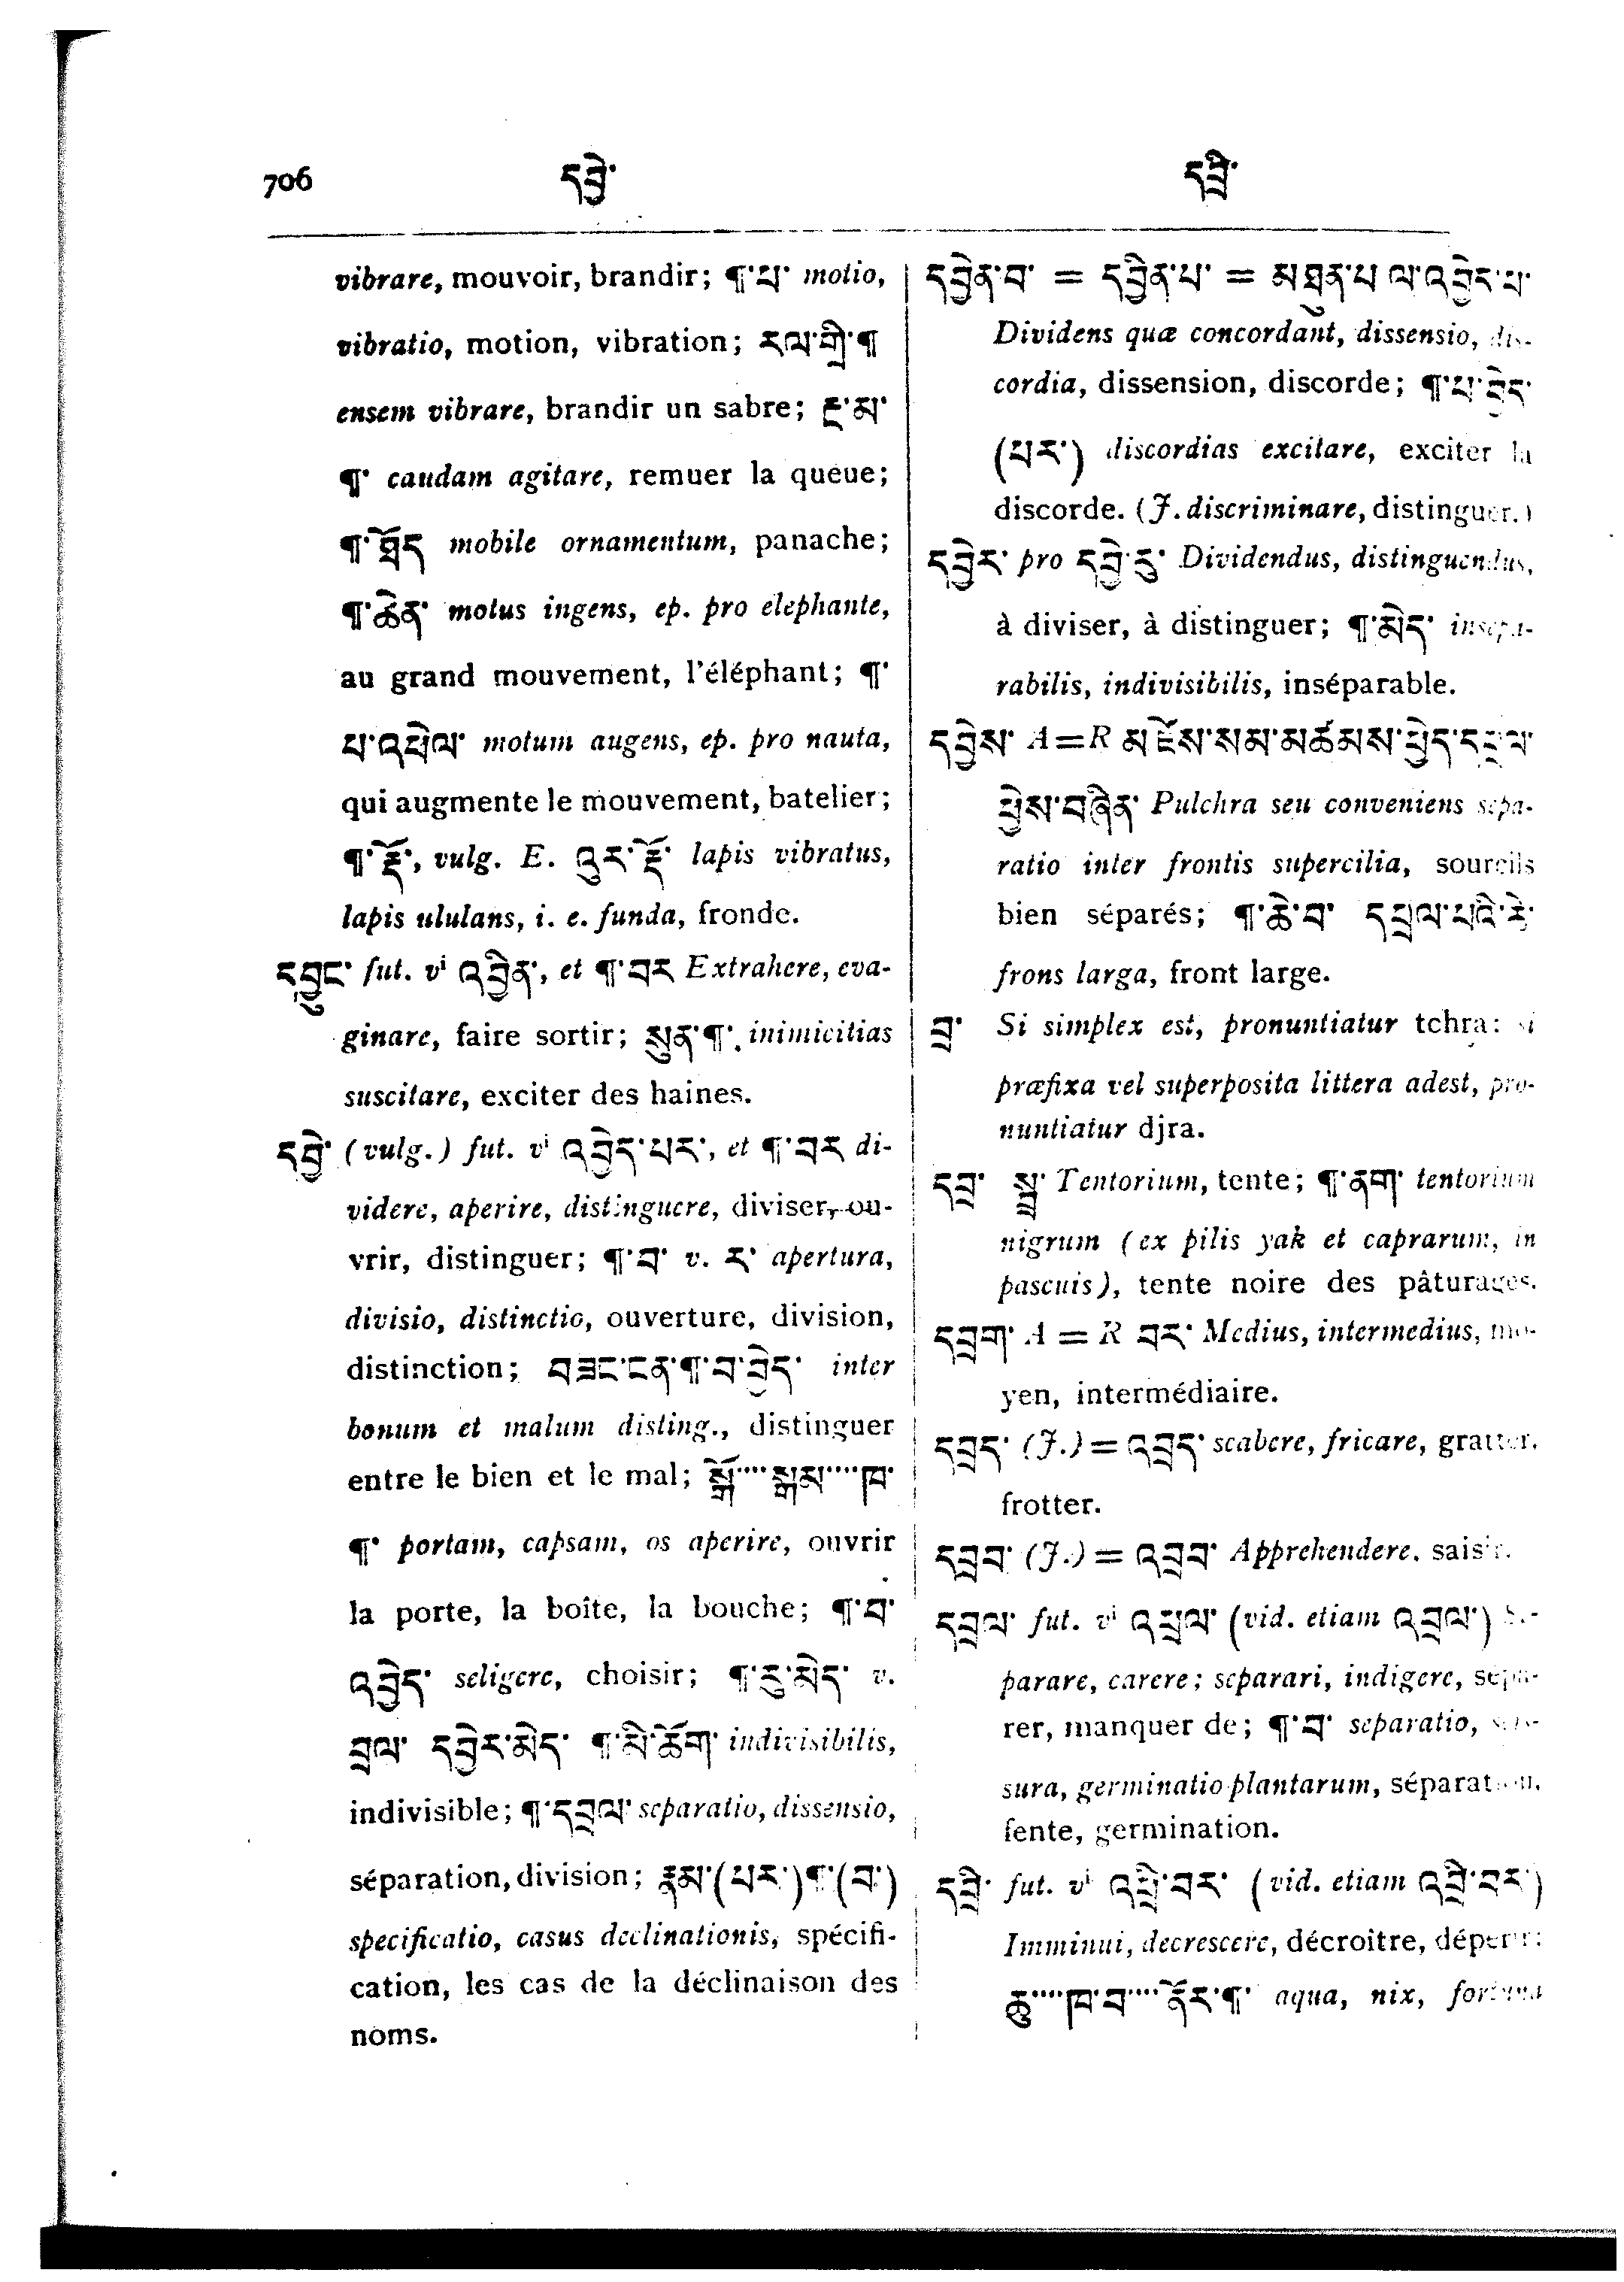 706 དབྱེ་ དབྲི་
vibrare, mouvoir, brandir; ¶་པ་ motio,
vibratio, motion, vibration; རལ་གྲི་¶
ensem vibrare, brandir un sabre; རྔ་མ་
¶་ caudam agitare, remuer la queue;
¶་ཐོད mobile ornamentum, panache;
¶་ཆེན་ motus ingens, ep. pro elephante,
au grand mouvement, l'éléphant; ¶་
པ་འཕེལ་ motum augens, ep. pro nauta,
qui augmente le mouvement, batelier;
¶་རྡོ་, vulg. E. འུར་རྡོ་ lapis vibratus,
lapis ululans, i. e. funda, fronde.
དབྱུང་ fut. vi འབྱིན་, et ¶་བར Extrahere, eva-
ginare, faire sortir; སུན་¶་ inimicitias
suscitare, exciter des haines.
དབྱེ་ (vulg.) fut. vi འབྱེད་པར་, et ¶་བར di-
videre, aperire, distinguere, diviser, ou-
vrir, distinguer; ¶་བ་ v. ར་ apertura,
divisio, distinctio, ouverture, division,
distinction; བཟང་ངན་¶་བ་བྱེད་ inter
bonum et malum disting., distinguer
entre le bien et le mal; སྒོ་···· སྒམ་····ཁ་
¶་ portam, capsam, os aperire, ouvrir
la porte, la boîte, la bouche; ¶་བ་
འབྱེད་ seligere, choisir; ¶་རུ་མེད་ v.
བྲལ་ དབྱེར་མེད་ ¶་མི་ཆོག་ indivisibilis,
indivisible; ¶་དབྲལ་ separatio, dissensio,
séparation, division; རྣམ་(པར་)¶་(བ་)
specificatio, casus declinationis, spécifi-
cation, les cas de la déclinaison des
noms.
དབྱེན་བ་ = དབྱིན་པ་ = མཐུན་པ་ལ་འབྱེད་པ་
Dividens quæ concordant, dissensio, dis-
cordia, dissension, discorde; ¶་པ་བྱེད་
(པར་) discordias excitare, exciter la
discorde. (J. discriminare, distinguer.)
དབྱེར་ pro དབྱེ་རུ་ Dividendus, distinguendus,
à diviser, à distinguer; ¶་མེད་ insepa-
rabilis, indivisibilis, inséparable.
དབྱེས་ A=R མཛོས་སམ་མཚམས་ཕྱེད་དཔྲལ་
ཕྱེས་བཞིན་ Pulchra seu conveniens sepa-
ratio inter frontis supercilia, sourcils
bien séparés; ¶་ཆེ་བ་ དཔྲལ་པའི་རེ་
frons larga, front large.
བྲ་ Si simplex est, pronuntiatur tchra: si
præfixa vel superposita littera adest, pro-
nuntiatur djra.
དབྲ་ སྦྲ་ Tentorium, tente; ¶་ནག་ tentorium
nigrum (ex pilis yak et caprarum, in
pascuis), tente noire des pâturages.
དབྲག་ A = R བར་ Medius, intermedius, mo-
yen, intermédiaire.
དབྲད་ (J.) = འབྲད་ scabere, fricare, gratter,
frotter.
དབྲབ་ (J.) = འབྲབ་ Apprehendere, saisir.
དབྲལ་ fut. vi འཕྲལ་ (vid. etiam འབྲལ་) Se-
parare, carere; separari, indigere, sépa-
rer, manquer de; ¶་བ་ separatio,
sura, germinatio plantarum, séparation,
fente, germination.
དབྲི་ fut. vi འཕྲི་བར་ (vid. etiam འབྲི་བར་)
Imminui, decrescere, décroître, dépérir;
ཆུ་····ཁ་བ་····ནོར་¶་ aqua, nix, fortuna